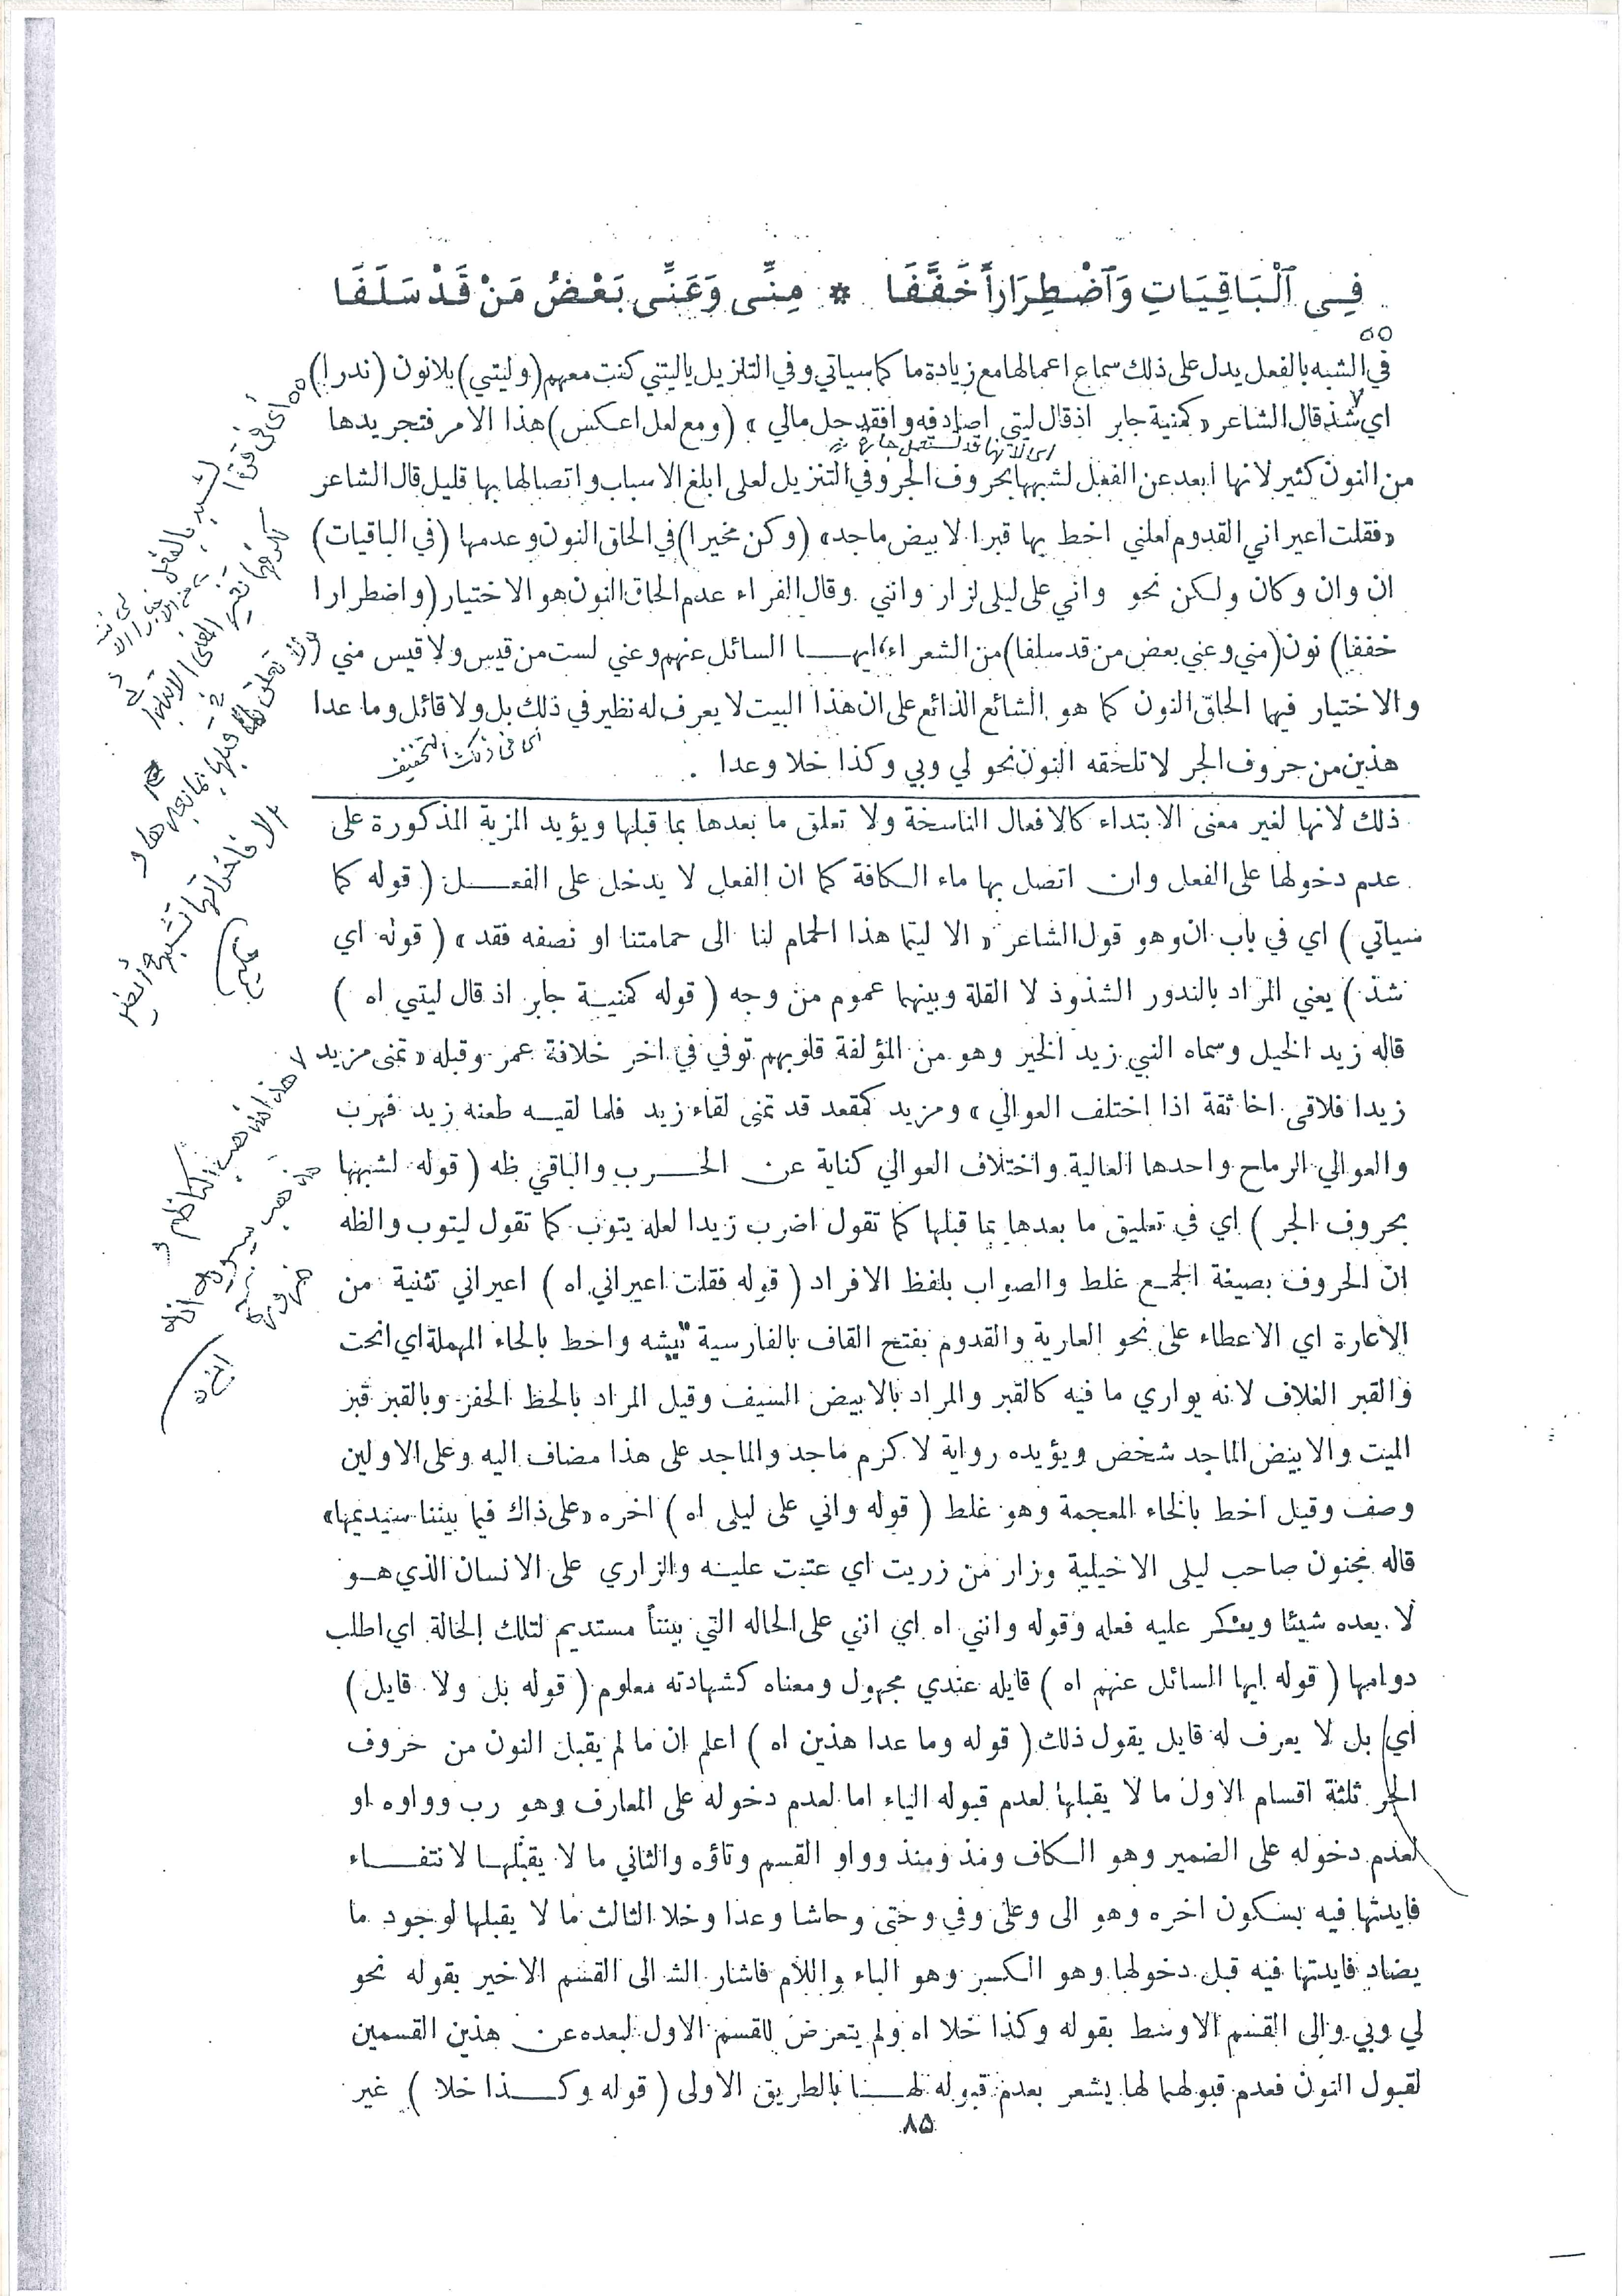 فِي ٱلْبَاقِيَاتِ وَٱضْطِرَاراً خَفَّفَا * مِنِّى وَعَنِّى بَعْضُ مَنْ قَدْ سَلَفَا
في الشبه بالفعل يدل على ذلك سماع اعمالها مع زيادة ما كما سياتي وفي التنزيل ياليتني كنت معهم (وليتي) بلا نون (ندرا)
اي شذ قال الشاعر « كمنية جابر اذ قال ليتي اصادفه وافقد جل مالي » (ومع لعل اعكس) هذا الامر فتجريدها
من النون كثير لانها ابعد عن الفعل لشبهها بحروف الجر وفي التنزيل لعلى ابلغ الاسباب واتصالها بها قليل قال الشاعر
«فقلت اعيراني القدوم لعلني اخط بها قبرا لابيض ماجد» (وكن مخيرا) في الحاق النون وعدمها (في الباقيات)
ان وان وكان ولكن نحو واني على ليلى لزار وانني وقال الفراء عدم الحاق النون هو الاختيار (واضطرارا
خففا) نون (مني وعني بعض من قد سلفا) من الشعراء ايهـا السائل عنهم وعني لست من قيس ولا قيس مني
والاختيار فيها الحاق النون كما هو الشائع الذائع على ان هذا البيت لا يعرف له نظير في ذلك بل ولا قائل وما عدا
هذين من حروف الجر لا تلحقه النون نحو لي وبي وكذا خلا وعدا
اى فى ذلك التخفيف
ذلك لانها لغير معنى الابتداء كالافعال الناسخة ولا تعلق ما بعدها بما قبلها ويؤيد المزية المذكورة على
عدم دخولها على الفعل وان اتصل بها ماء الكافة كما ان الفعل لا يدخل على الفعـل ( قوله كما
سياتي ) اي في باب ان وهو قول الشاعر « الا ليتما هذا الحمام لنا الى حمامتنا او نصفه فقد » ( قوله اي
شذ ) يعني المراد بالندور الشذوذ لا القلة وبينهما عموم من وجه ( قوله كمنيـة جابر اذ قال ليتي اه )
قاله زيد الخيل وسماه النبي زيد الخير وهو من المؤلفة قلوبهم توفي في اخر خلافة عمر وقبله « تمنى مزيد
زيدا فلاقى اخا ثقة اذا اختلف العوالي » ومزيد كمقعد قد تمنى لقاء زيد فلما لقيـه طعنه زيد فهرب
والعوالي الرماح واحدها العالية واختلاف العوالي كناية عن الحـرب والباقي ظه ( قوله لشبهها
بحروف الجر ) اي في تعليق ما بعدها بما قبلها كما تقول اضرب زيدا لعله يتوب كما تقول ليتوب والظه
ان الحروف بصيغة الجمع غلط والصواب بلفظ الافراد ( قوله فقلت اعيراني اه ) اعيراني تثنية من
الاعارة اي الاعطاء على نحو العارية والقدوم بفتح القاف بالفارسية تيشه واخط بالحاء المهملة اي انحت
والقبر الغلاف لانه يواري ما فيه كالقبر والمراد بالابيض السيف وقيل المراد بالخط الحفر وبالقبر قبر
الميت والابيض الماجد شخص ويؤيده رواية لاكرم ماجد والماجد على هذا مضاف اليه وعلى الاولين
وصف وقيل اخط بالخاء المعجمة وهو غلط ( قوله واني على ليلى اه ) اخره «على ذاك فيما بيننا سنيديمها»
قاله مجنون صاحب ليلى الاخيلية وزار من زريت اي عتبت عليـه والزاري على الانسان الذي هـو
لا يعده شيئا وينكر عليه فعله وقوله وانني اه اي انني على الحاله التي بيننا مستديم لتلك الحالة اي اطلب
دوامها ( قوله ايها السائل عنهم اه ) قايله عندي مجهول ومعناه كشهادته معلوم ( قوله بل ولا قايل )
اي بل لا يعرف له قايل يقول ذلك ( قوله وما عدا هذين اه ) اعلم ان ما لم يقبل النون من حروف
الجر ثلثة اقسام الاول ما لا يقبلها لعدم قبوله الياء اما لعدم دخوله على المعارف وهو رب وواوه او
لعدم دخوله على الضمير وهو الكاف ومذ ومنذ وواو القسم وتاؤه والثاني ما لا يقبلهـا لانتفـاء
فايدتها فيه بسكون اخره وهو الى وعلى وفي وحتى وحاشا وعدا وخلا الثالث ما لا يقبلها لوجود ما
يضاد فايدتها فيه قبل دخولها وهو الكسر وهو الباء واللام فاشار الش الى القسم الاخير بقوله نحو
لي وبي والى القسم الاوسط بقوله وكذا خلا اه ولم يتعرض للقسم الاول لبعده عن هذين القسمين
لقبول النون فعدم قبولهما لها يشعر بعدم قبوله لهـا بالطريق الاولى ( قوله وكـذا خلا ) غير
۸۵